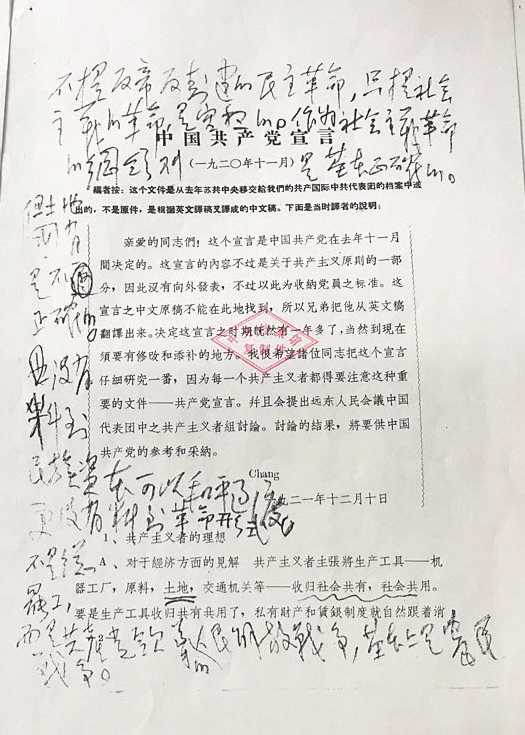 不提反帝反封建的民主革命，只提社会
主义的革命，是空想的。作为社会主义革命
的纲领则是基本正确的。
中国共产党宣言
（一九二〇年十一月）
編者按：这个文件是从去年苏共中央移交給我們的共产国际中共代表团的档案中选
出的，不是原件，是根据英文譯稿又譯成的中文稿。下面是当时譯者的說明：
亲爱的同志們！这个宣言是中国共产党在去年十一月
間决定的。这宣言的內容不过是关于共产主义原則的一部
分，因此沒有向外發表，不过以此为收納党員之标准。这
宣言之中文原稿不能在此地找到，所以兄弟把他从英文稿
翻譯出来。决定这宣言之时期旣然有一年多了，当然到現在
須要有修改和添补的地方。我很希望諸位同志把这个宣言
仔細研究一番，因为每一个共产主义者都得要注意这种重
要的文件——共产党宣言。幷且会提出远东人民会議中国
代表团中之共产主义者組討論。討論的结果，將要供中国
共产党的参考和采納。
Chang
一九二一年十二月十日
但土地
国有
是不
正确的。
没有
料到
民族资本可以和平过渡。
更没有料到革命形式
不是总
罢工，
而是共产党领导的人民解放战争，基本上是农民
战争。
1、共产主义者的理想
A、对于經济方面的見解 共产主义者主張將生产工具——机
器工厂，原料，土地，交通机关等——收归社会共有，社会共用。
要是生产工具收归共有共用了，私有財产和賃銀制度就自然跟着消